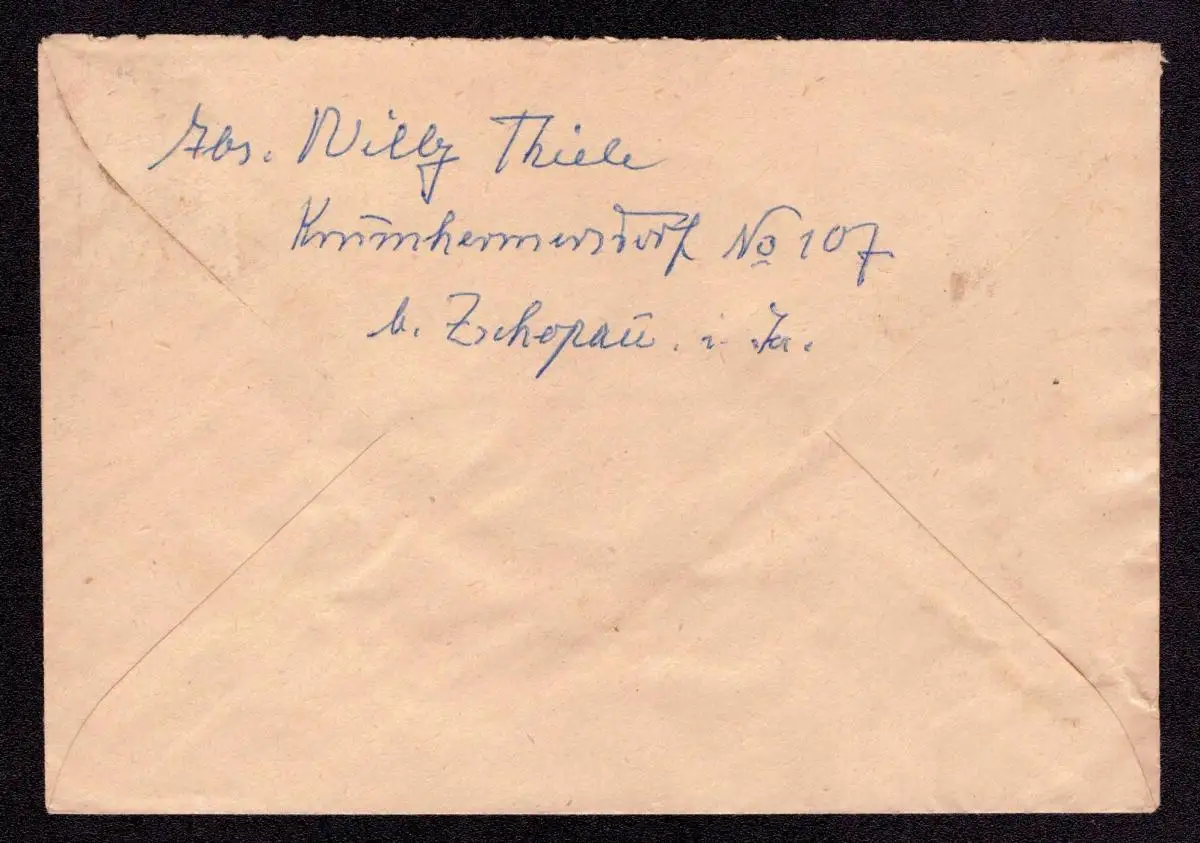 Abs. Willy Thiele
Krumhermersdorf No 107
b. Zschopau. i. Sa.